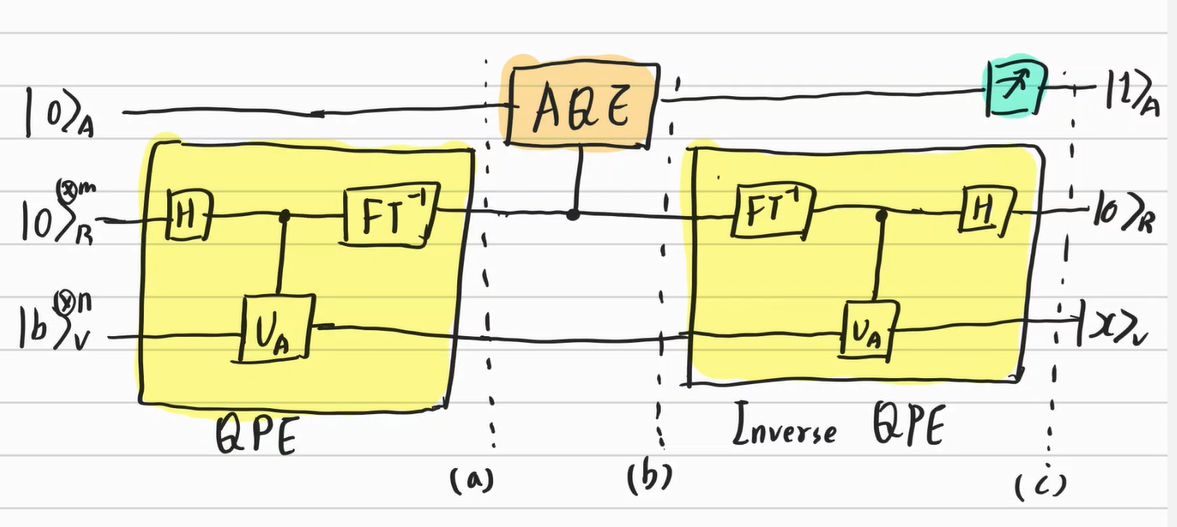 |0⟩A AQE |1⟩A
|0⟩R⊗m H FT⁻¹ FT⁻¹ H |0⟩R
|b⟩V⊗n UA UA |x⟩V
QPE Inverse QPE
(a) (b) (c)